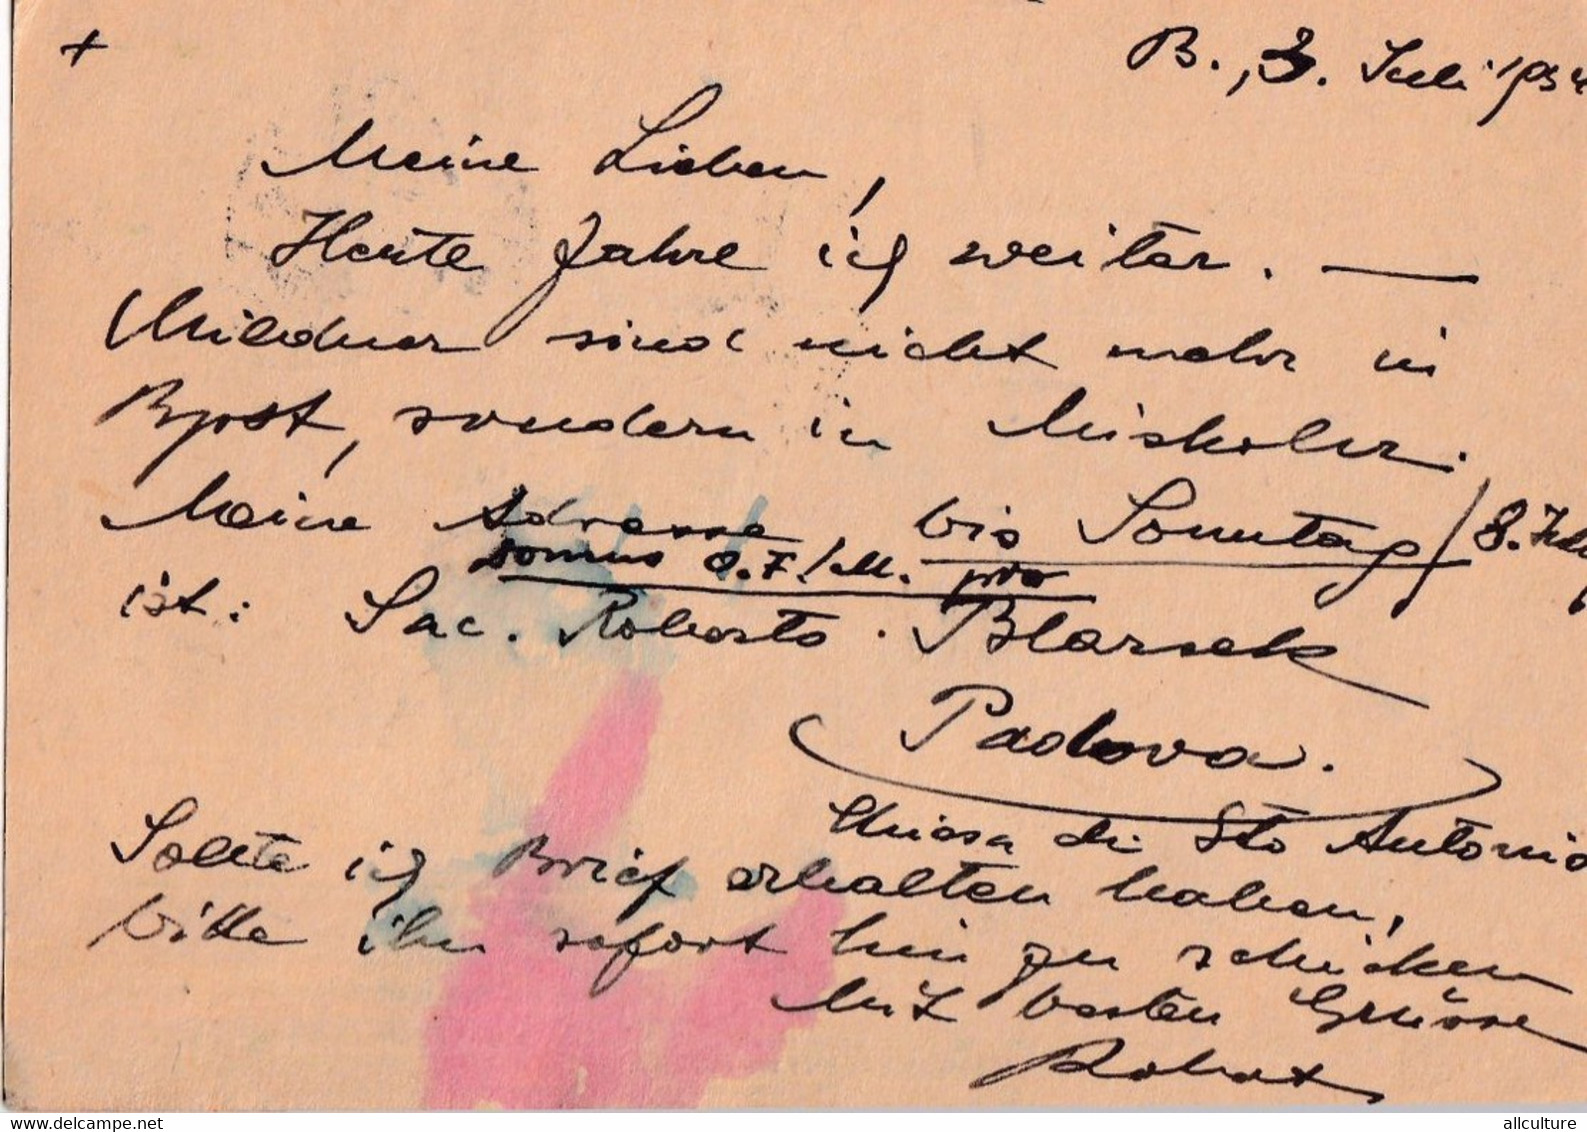 +
B., 3. Juli 1934
Meine Lieben,
Heute fahre ich weiter. —
Mildner sind nicht mehr in
Bpest, sondern in Miskolcz.
Meine Adresse bis Sonntag / 8. Juli /
domus O.F.M. pro
ist: Sac. Roberto. Blarsek
Padova.
Chiesa di Sto Antonio
Sollte ich Brief erhalten haben,
bitte ihn sofort hin zu schicken
Mit besten Grüsse
Robert
allculture
www.delcampe.net